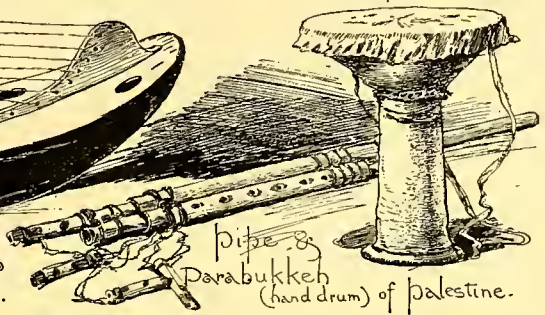 pipe &
parabukkeh
(hand drum) of palestine.